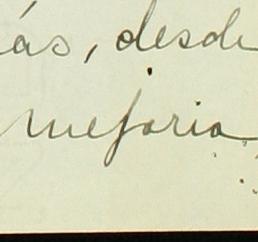 ás, desde
mejoria